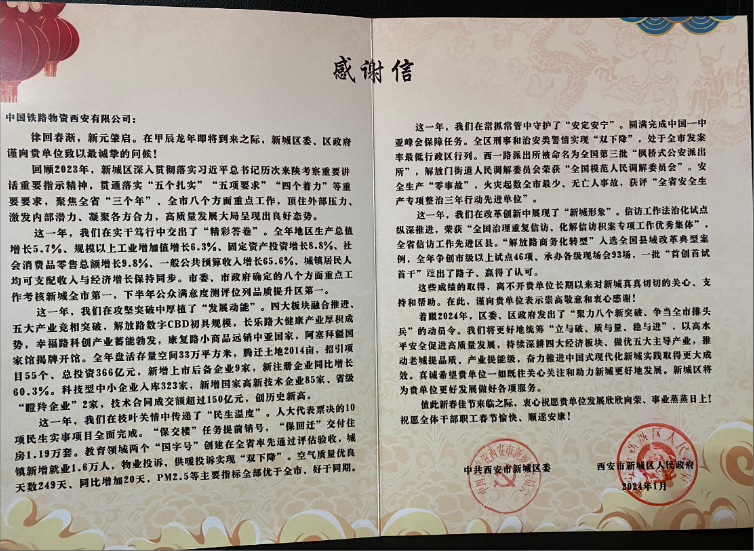 感谢信
中国铁路物资西安有限公司：
律回春渐，新元肇启。在甲辰龙年即将到来之际，新城区委、区政府
谨向贵单位致以最诚挚的问候！
回顾2023年，新城区深入贯彻落实习近平总书记历次来陕考察重要讲
话重要指示精神，贯通落实“五个扎实”“五项要求”“四个着力”等重
要要求，聚焦全省“三个年”、全市八个方面重点工作，顶住外部压力、
激发内部潜力、凝聚各方合力，高质量发展大局呈现出良好态势。
这一年，我们在实干笃行中交出了“精彩答卷”。全年地区生产总值
增长5.7%、规模以上工业增加值增长6.3%、固定资产投资增长8.8%、社
会消费品零售总额增长9.8%、一般公共预算收入增长65.6%，城镇居民人
均可支配收入与经济增长保持同步。市委、市政府确定的八个方面重点工
作考核新城全市第一，下半年公众满意度测评位列品质提升区第一。
这一年，我们在攻坚突破中厚植了“发展动能”。四大板块融合推进、
五大产业竞相突破，解放路数字CBD初具规模，长乐路大健康产业厚积成
势，幸福路科创产业蓄能勃发，康复路小商品远销中亚国家，阿塞拜疆国
家馆揭牌开馆。全年盘活存量空间33万平方米，腾迁土地2014亩，招引项
目55个、总投资366亿元，新增上市后备企业9家，新注册企业同比增长
60.3%。科技型中小企业入库323家，新增国家高新技术企业85家、省级
“瞪羚企业”2家，技术合同成交额超过150亿元，创历史新高。
这一年，我们在枝叶关情中传递了“民生温度”。人大代表票决的10
项民生实事项目全面完成。“保交楼”任务提前销号，“保回迁”交付住
房1.19万套。教育领域两个“国字号”创建在全省率先通过评估验收，城
镇新增就业1.6万人，物业投诉，供暖投诉实现“双下降”。空气质量优良
天数249天，同比增加20天，PM2.5等主要指标全部优于全市、好于同期。
这一年，我们在常抓常管中守护了“安定安宁”。圆满完成中国—中
亚峰会保障任务。全区刑事和治安类警情实现“双下降”，处于全市发案
率最低行政区行列。西一路派出所被命名为全国第三批“枫桥式公安派出
所”，解放门街道人民调解委员会荣获“全国模范人民调解委员会”。安
全生产“零事故”，火灾起数全市最少、无亡人事故，获评“全省安全生
产专项整治三年行动先进单位”。
这一年，我们在改革创新中展现了“新城形象”。信访工作法治化试点
纵深推进，荣获“全国治理重复信访、化解信访积案专项工作优秀集体”，
全省信访工作先进区县。“解放路商务化转型”入选全国县域改革典型案
例，全年争创市级以上试点46项、承办各级现场会93场，一批“首创首试
首干”迈出了路子、赢得了认可。
这些成绩的取得，离不开贵单位长期以来对新城真真切切的关心、支
持和帮助。在此，谨向贵单位表示崇高敬意和衷心感谢！
着眼2024年，区委、区政府发出了“聚力八个新突破、争当全市排头
兵”的动员令。我们将更好地统筹“立与破、质与量、稳与进”，以高水
平安全促进高质量发展，持续深耕四大经济板块、做优五大主导产业，推
动老城提品质、产业提能级，奋力推进中国式现代化新城实践取得更大成
效。真诚希望贵单位一如既往关心关注和助力新城更好地发展。新城区将
为贵单位更好发展做好各项服务。
值此新春佳节来临之际，衷心祝愿贵单位发展欣欣向荣、事业蒸蒸日上！
祝愿全体干部职工春节愉快、顺遂安康！
中共西安市新城区委
西安市新城区人民政府
2024年1月